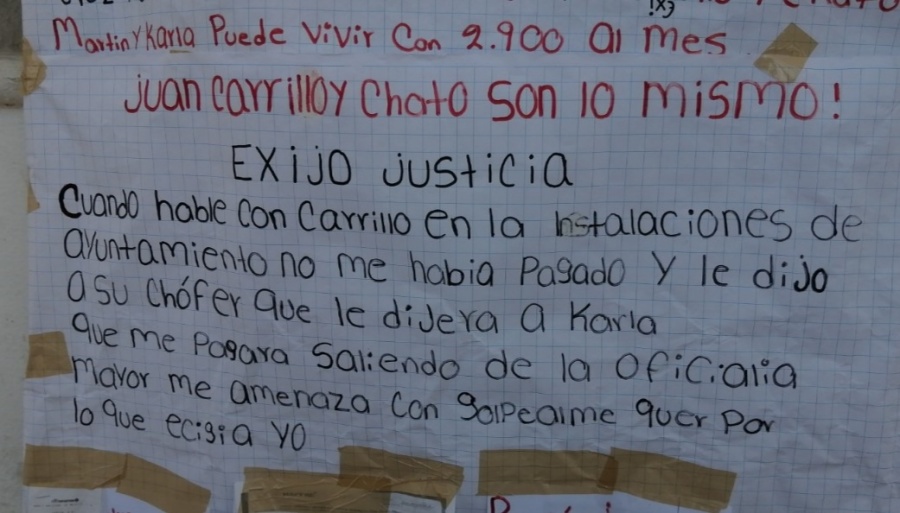 Martin y Karla Puede vivir Con 2.900 al mes
Juan Carrillo y Chato Son lo mismo!
EXiJO JUSticia
Cuando hable Con Carrillo en la instalaciones de
ayuntamiento no me habia Pagado y le dijo
a su Chófer que le diJera a Karla
que me Pagara Saliendo de la OFiCialia
Mayor me amenaza Con golpealme quer Por
lo que ecigia yo